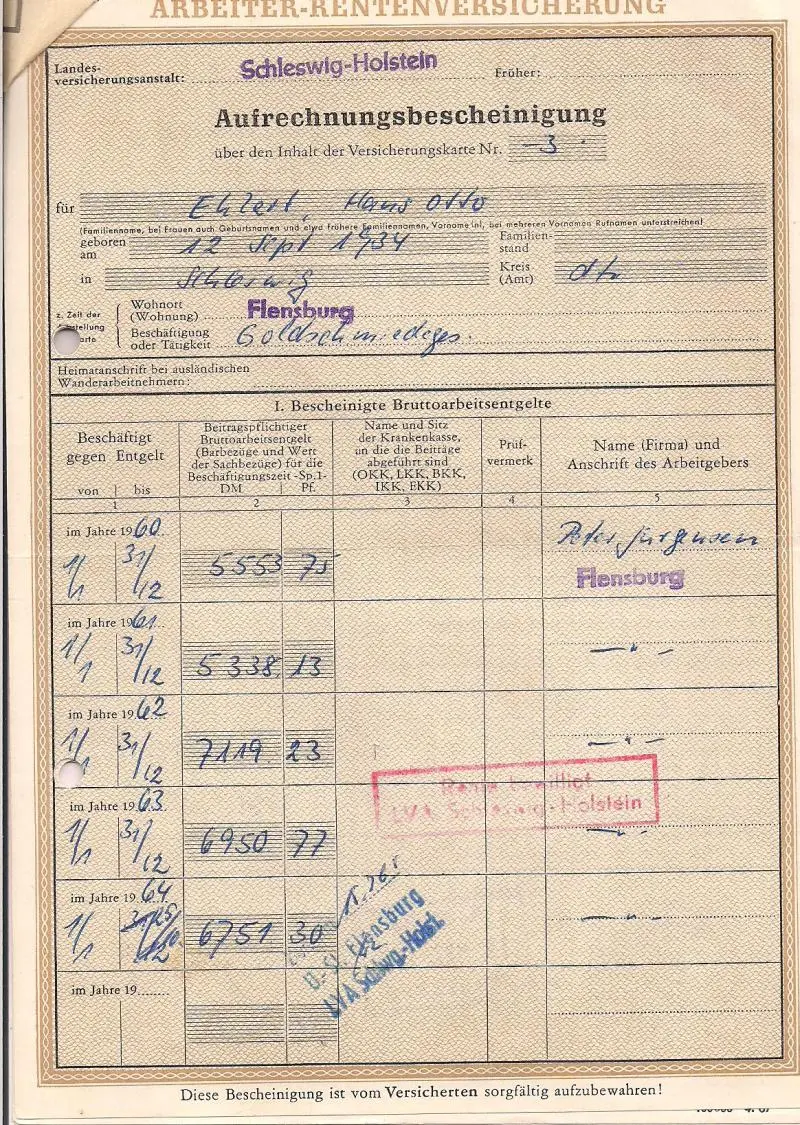 ARBEITER-RENTENVERSICHERUNG
Landes-
versicherungsanstalt: Schleswig-Holstein Früher:
Aufrechnungsbescheinigung
über den Inhalt der Versicherungskarte Nr. 3
für Ehlert, Hans Otto
(Familienname, bei Frauen auch Geburtsnamen und etwa frühere Familiennamen, Vorname(n), bei mehreren Vornamen Rufnamen unterstreichen)
geboren am 12 Sept 1934 Familien-
stand
in Schleswig Kreis
(Amt)
z. Zeit der
Wohnort
(Wohnung) Flensburg
Beschäftigung
oder Tätigkeit Goldschmiedeges.
Heimatanschrift bei ausländischen
Wanderarbeitnehmern:
I. Bescheinigte Bruttoarbeitsentgelte
Beschäftigt
gegen Entgelt
von bis
1
Beitragspflichtiger
Bruttoarbeitsentgelt
(Barbezüge und Wert
der Sachbezüge) für die
Beschäftigungszeit -Sp.1-
DM Pf.
2
Name und Sitz
der Krankenkasse,
an die die Beiträge
abgeführt sind
(OKK, LKK, BKK,
IKK, EKK)
3
Prüf-
vermerk
4
Name (Firma) und
Anschrift des Arbeitgebers
5
im Jahre 1960
1/1 31/12 5553 75 Peter Jürgensen
Flensburg
im Jahre 1961
1/1 31/12 5338 13 — " —
im Jahre 1962
1/1 31/12 7119 23 — " —
Rente bewilligt
LVA Schleswig-Holstein
im Jahre 1963
1/1 31/12 6950 77 — " —
im Jahre 1964
1/1 6751 30 — " —
Flensburg
LVA Schlesw.-Holst.
im Jahre 19
Diese Bescheinigung ist vom Versicherten sorgfältig aufzubewahren!